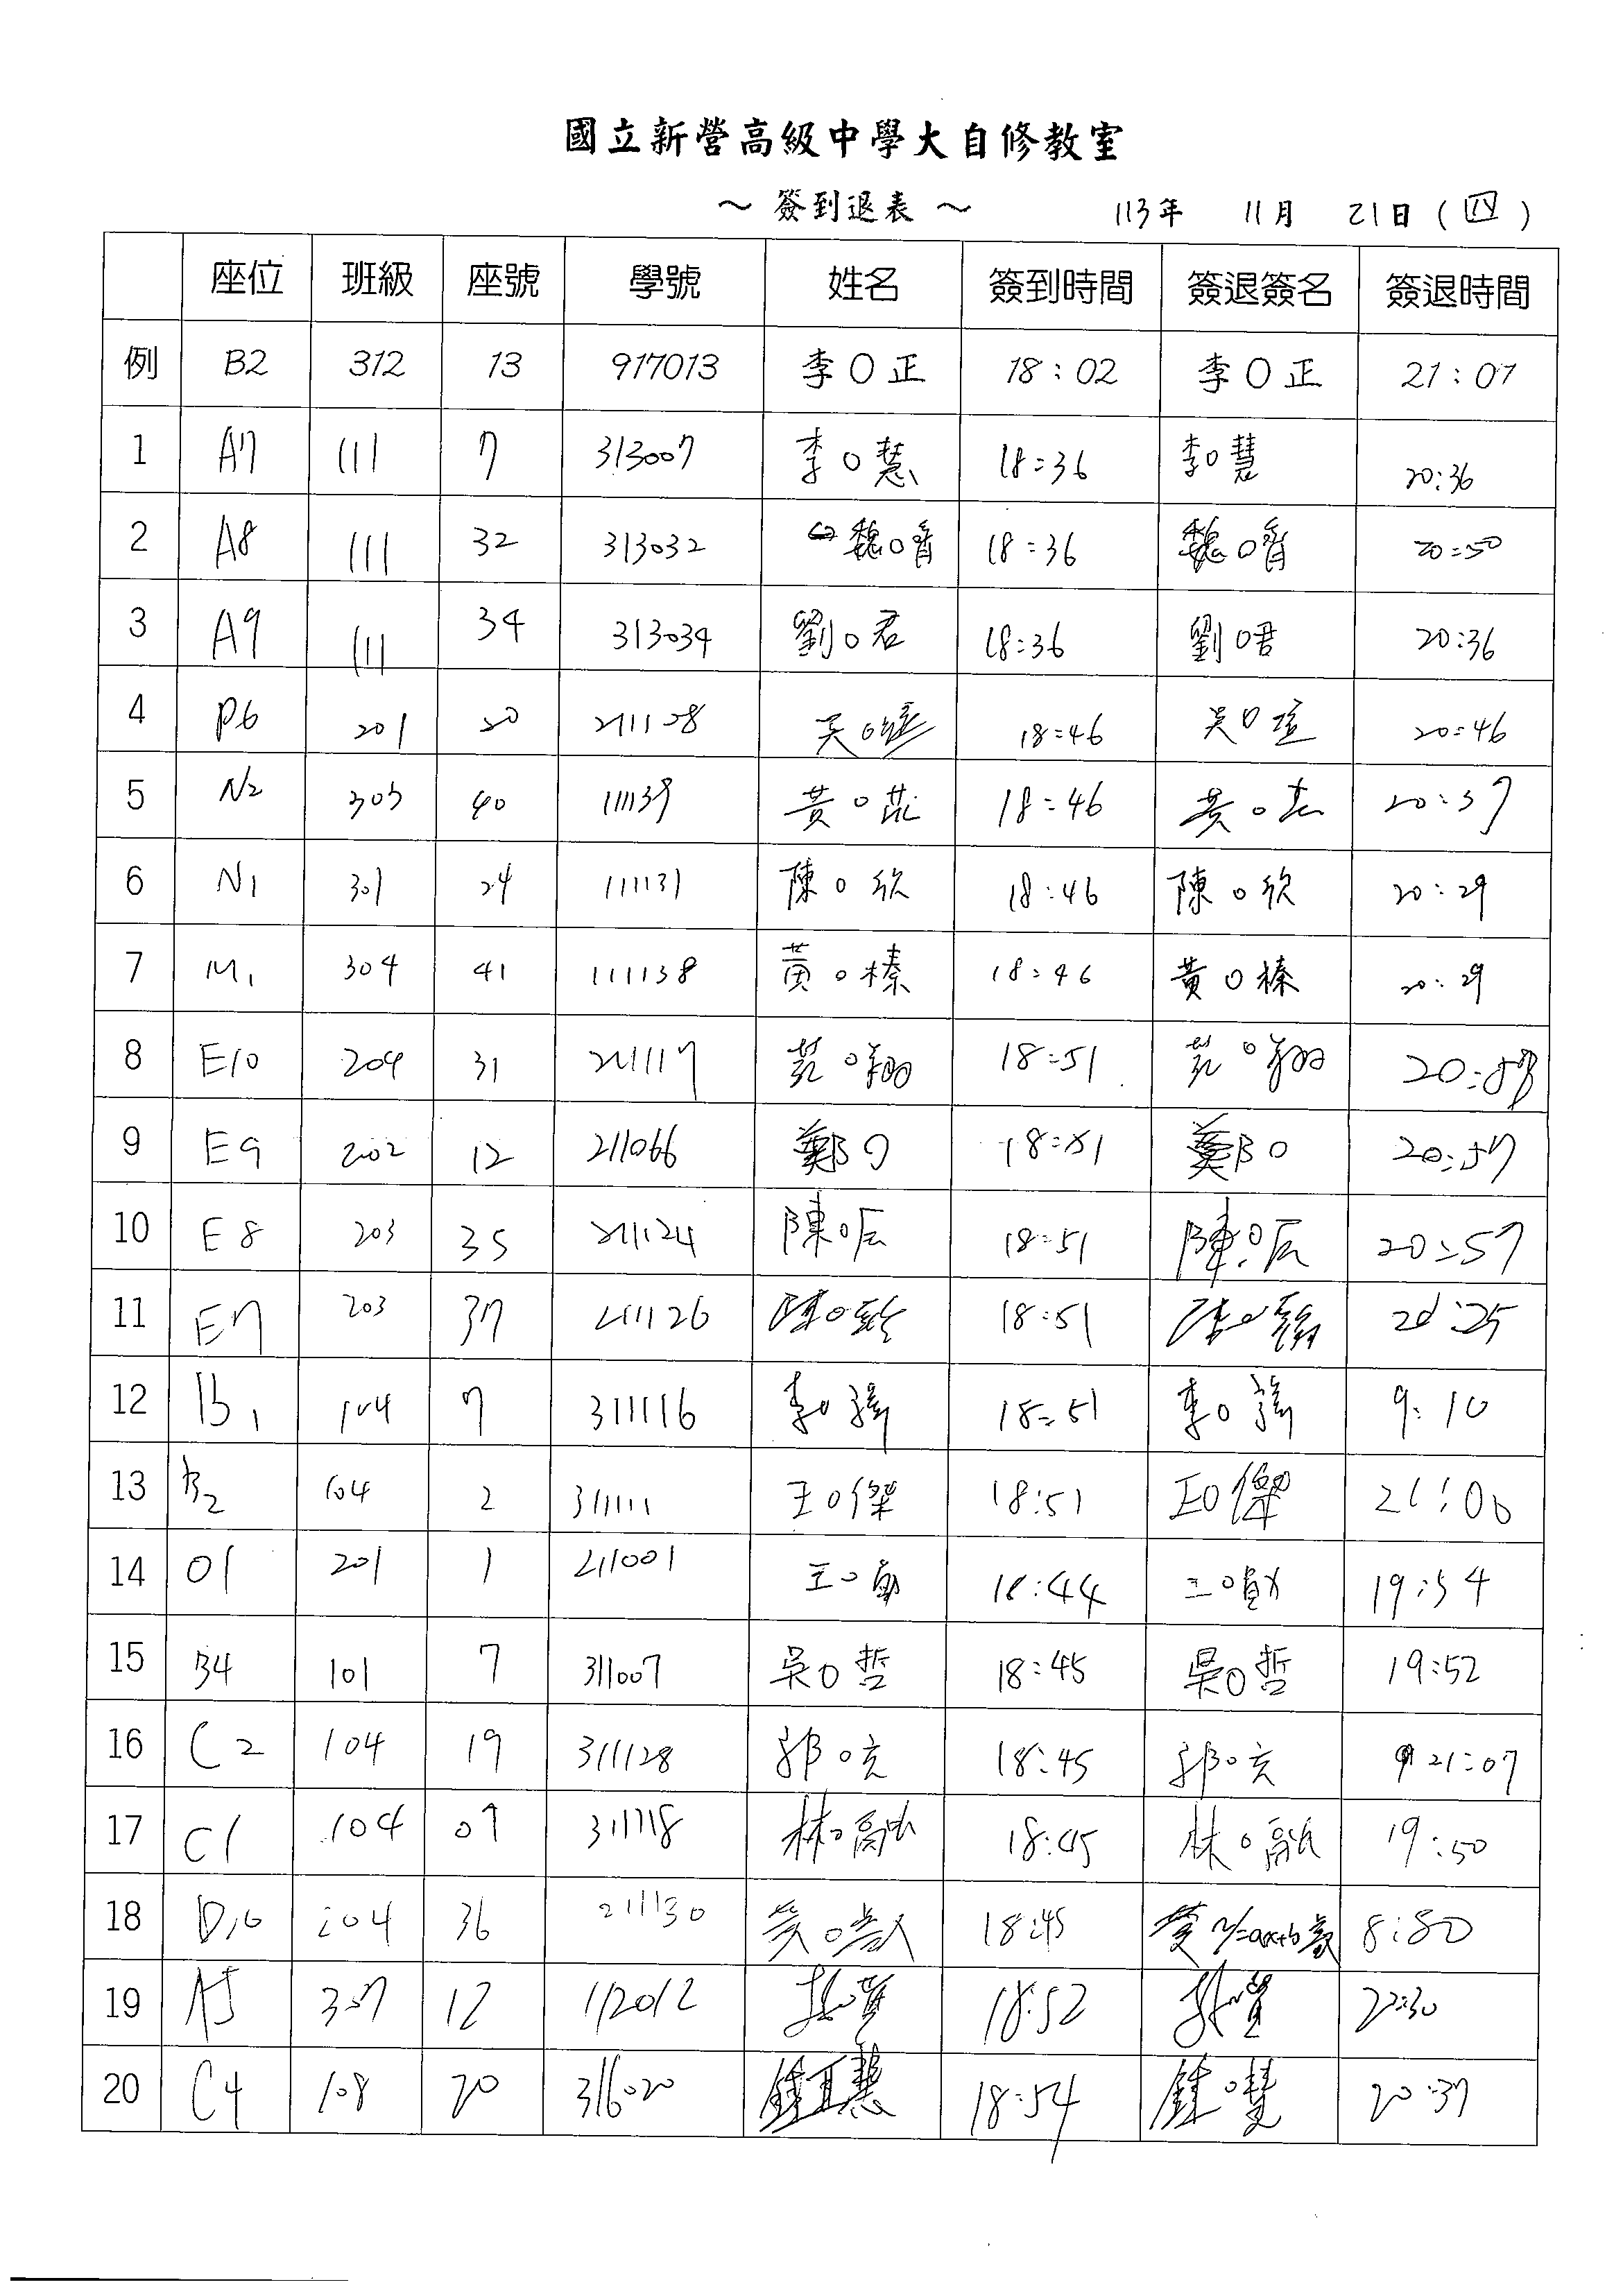 國立新營高級中學大自修教室
～ 簽到退表 ～ 113年 11月 21日 (四)
座位 班級 座號 學號 姓名 簽到時間 簽退簽名 簽退時間
例 B2 312 13 917013 李O正 18:02 李O正 21:07
1 A7 111 7 313007 李O慧 18:36 李O慧 20:36
2 A8 111 32 313032 魏O脋 18:36 魏O脋 20:50
3 A9 111 34 313034 劉O君 18:36 劉O君 20:36
4 P6 201 20 211108 吳O萱 18:46 吳O萱 20:46
5 N2 303 40 111139 黃O茈 18:46 黃O 20:37
6 N1 301 24 111131 陳O欣 18:46 陳O欣 20:29
7 M1 304 41 111138 黃O榛 18:46 黃O榛 20:29
8 E10 204 31 211117 范O翔 18:51 范O翔 20:58
9 E9 202 12 211066 鄭O 18:51 鄭O 20:57
10 E8 203 35 211124 陳O辰 18:51 陳O辰 20:57
11 E7 203 37 211126 陳O 18:51 陳O 20:25
12 B1 104 7 311116 李O 18:51 李O 9:10
13 B2 104 2 311111 王O傑 18:51 王O傑 21:00
14 O1 201 1 211001 王O 18:44 王O 19:54
15 B4 101 7 311007 吳O哲 18:45 吳O哲 19:52
16 C2 104 19 311128 郭O亥 18:45 郭O亥 21:07
17 C1 104 09 311118 林O融 18:45 林O融 19:50
18 D10 204 36 211130 18:45 y=ax+b 8:50
19 A5 307 12 112012 18:52 22:30
20 C4 108 20 316020 鍾O慧 18:54 鍾O慧 20:37